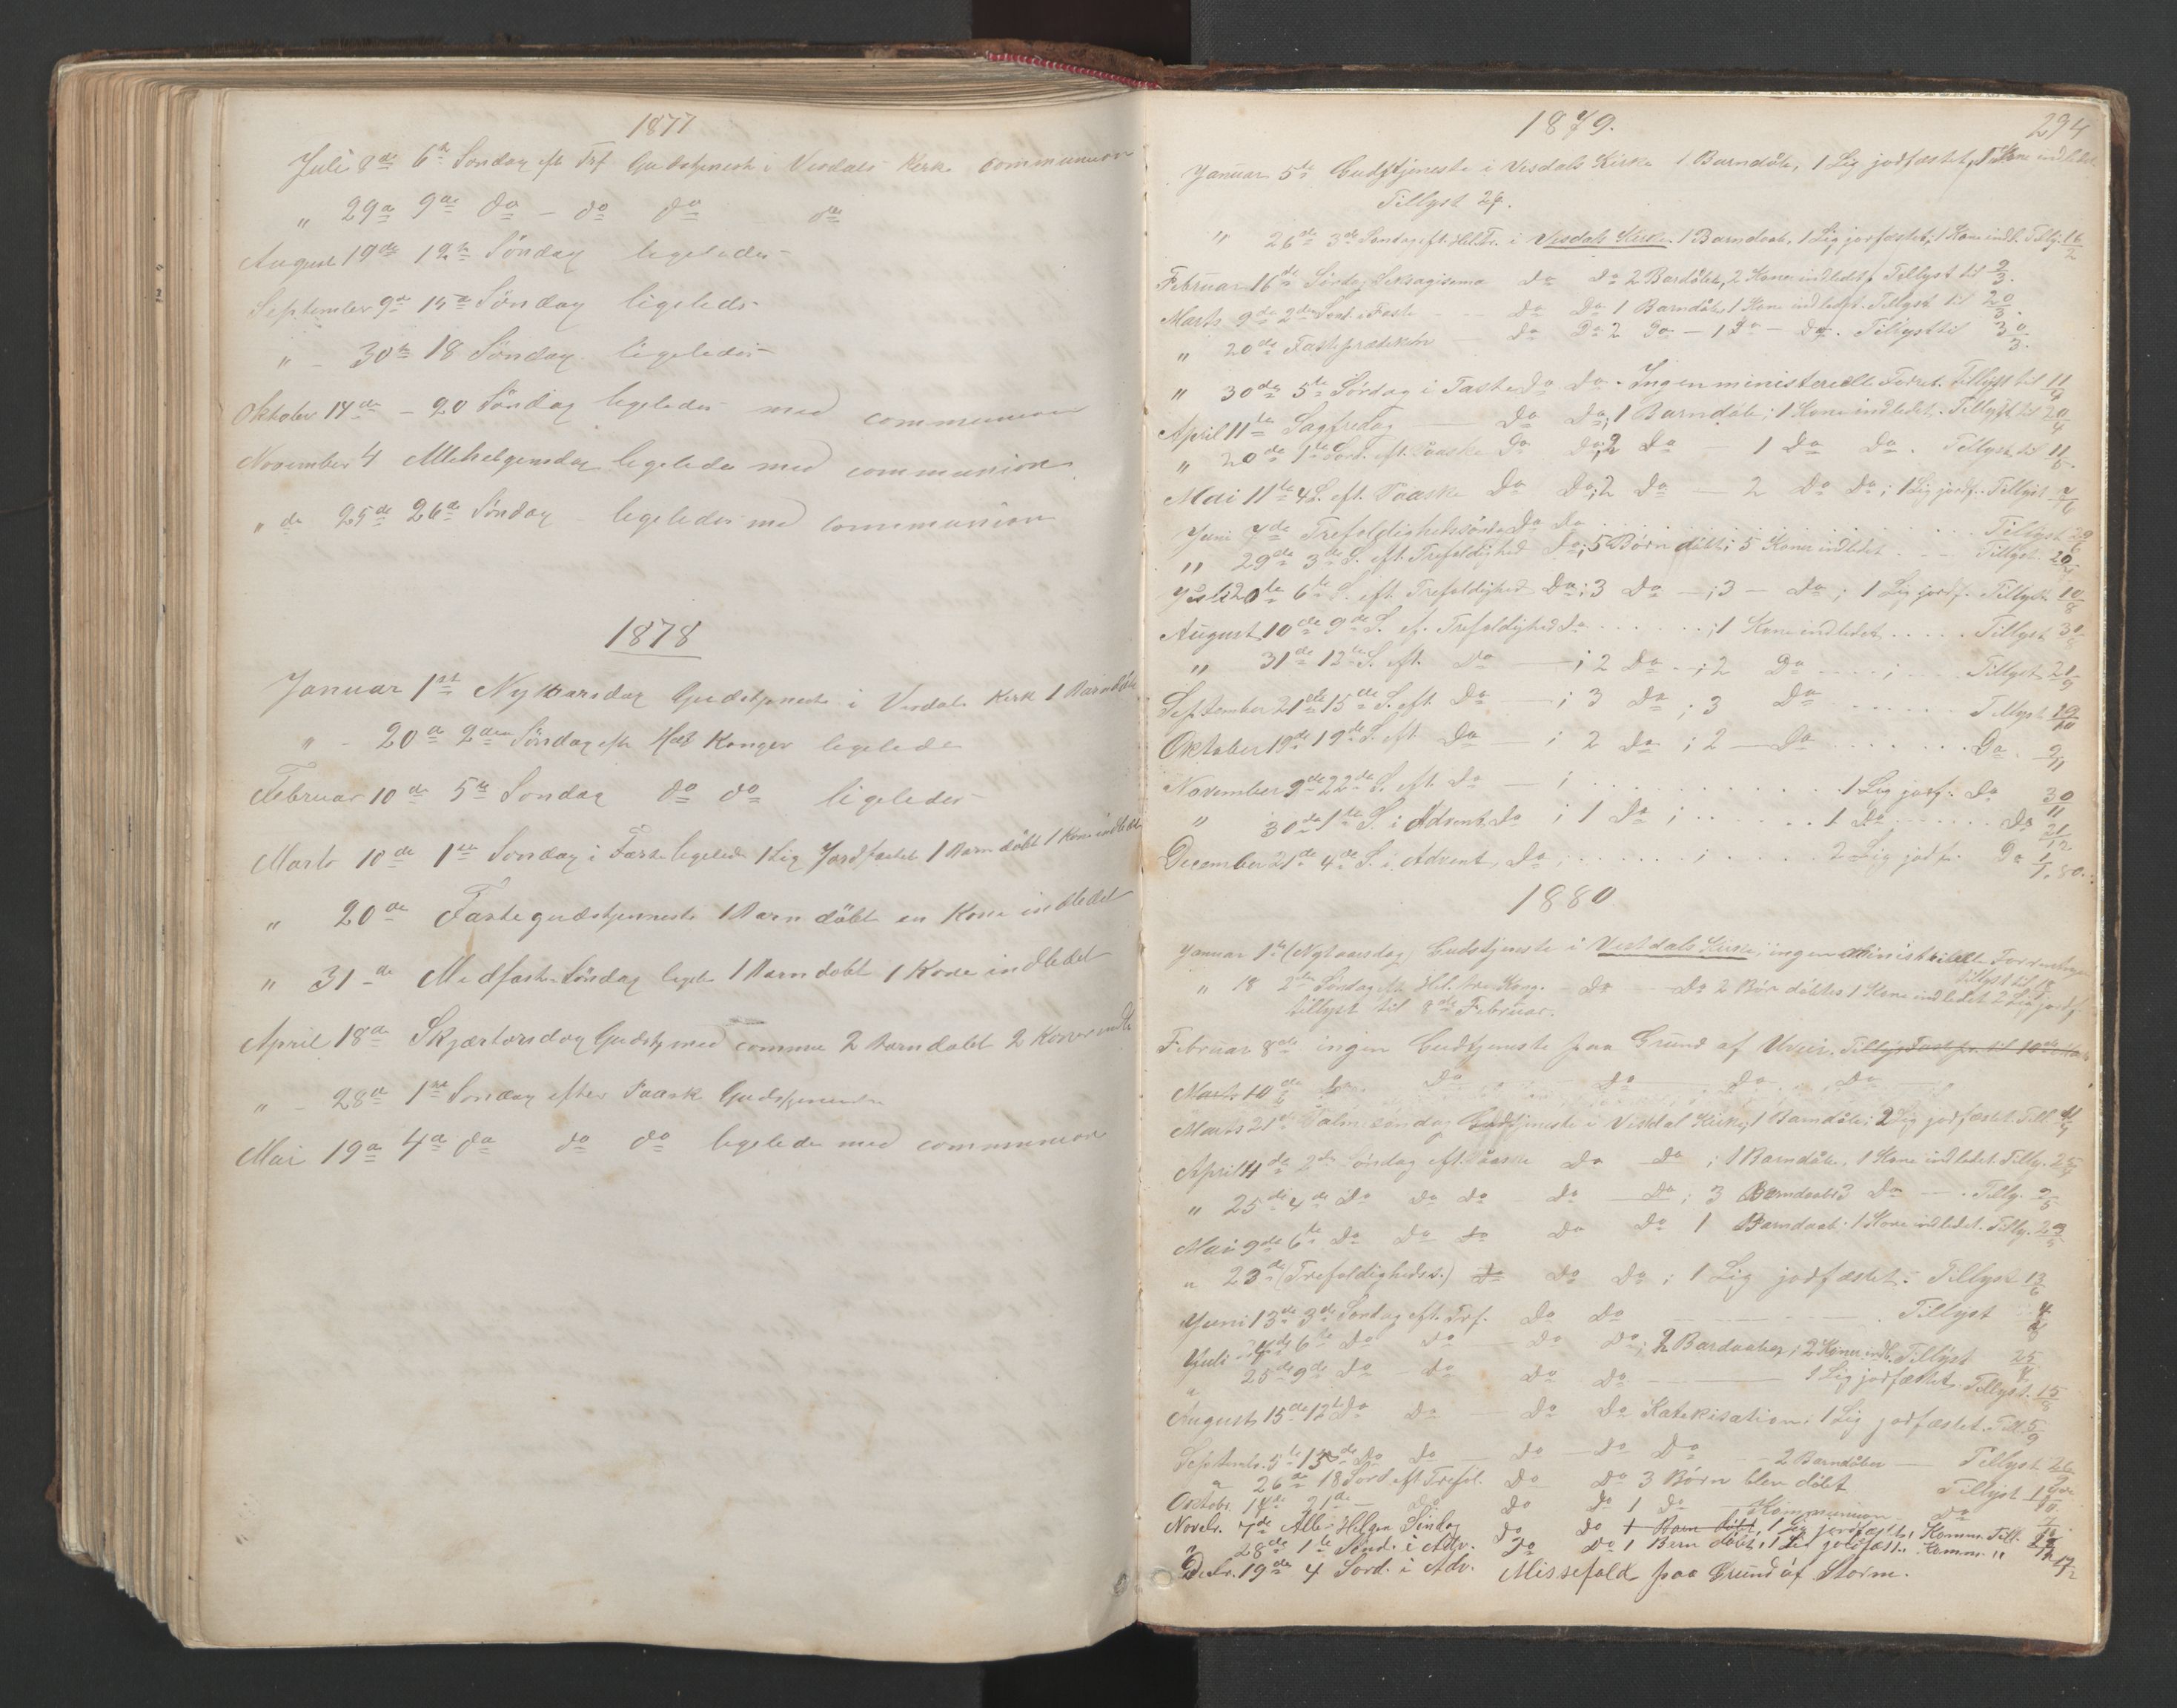 1877
Juli 8de 6te Søndag eft Trf Gudstjeneste i Vesdals Kirke communion
" 29de 9de do – do do do
August 19de 12te Søndag ligeledes
September 9de 15de Søndag ligeledes
" – 30te 18 Søndag ligeledes
Oktober 14de – 20 Søndag ligeledes med communion
November 4 Allehelgensdag ligeledes med communion
" da 25de 26de Søndag – ligeledes med communion
1878
Januar 1st Nytaarsdag Gudstjeneste i Vesdals Kirk 1 Barn døbt
" – 20de 2den Søndag eft Hel 3 Konger ligelede
Februar 10de 5te Søndag do do ligeledes
Marts 10de 1ste Søndag i Faste ligelede 1 Lig Jordfæstet 1 Barn døbt 1 Kone indledet
" 20de Fastegudstjenneste 1 Barn døbt en Kone indledet
" 31de Midfaste Søndag ligele 1 Barn døbt 1 Kone indledet
April 18de Skjærtorsdag Gudstj med commu 2 Barn døbt 2 Koner indl
" – 28de 1ste Søndag efter Paask Gudstjeneste
Mai 19de 4de do do do ligelede med communion
1879.
294
Januar 5te Gudstjeneste i Vesdals Kirke 1 Barndåb, 1 Lig jordfæstet, 1 Kone indledet
Tillyst 26.
" 26de 3de Søndag eft. Hel. Tr. i Vesdals Kirke. 1 Barndaab, 1 Lig jorfæstet, 1 Kone indl. Tillyst 16/2
Februar 16de Søndag Seksagisema do do 2 Bardåbe, 2 Koner indledet, Tillyst til 9/3.
Marts 9de 2den Sønd. i Faste – do Do 1 Barndåb, 1 Kone indledet. Tillyst til 20/3.
" 20de Fasteprædiken – do Do 2 Do – 1 Do – do. Tillyst til 30/3.
" 30de 5te Søndag i Faste do do – Ingen ministerielle Forret. Tillyst til 11/4
April 11te Langfredag – do do; 1 Barndåb; 1 Kone indledet. Tillyst til 20/4
" 20de 1ste Sønd. eft. Paaske Do do; 2 do – 1 do do. Tillyst til 11/5.
Mai 11te 4 S. eft. Paaske do do; 2 do – 2 do do; 1 Lig jordf. Tillyst 7/6
Juni 7de Trefoldighedssønda do do . . . . . . Tillyst 29/6
" 29de 3de S. eft. Trefoldighed do; 5 Børn døbt; 5 Koner indledet . . . Tillyst 20/7
Juli 20de 6te S. eft. Trefoldighed do; 3 do – ; 3 – do; 1 Lig jordf. Tillyst 10/8
August 10de 9de S. ef. Trefoldighed do . . . . . ; 1 Kone indledet . . . . Tillyst 31/8
" 31de 12te S. eft. do – ; 2 do – ; 2 do . . . ; . . . . Tillyst 21/9
September 21de 15de S. eft. do – ; 3 do ; 3 do . . . . . Tillyst 19/10
Oktober 19de 19de S. eft. do – ; 2 do ; 2 – do . . . . . . Do 9/11
November 9de 22de S. eft. do – ; . . . . . . . 1 Lig jorf. do 30/11
" 30de 1ste S. i Advent do ; 1 do ; . . . . . 1 do . . . . . do 21/12
December 21de 4de S. i Advent, do ; . . . . . ; . . . . . 2 Lig jodf. Do 1/1. 80.
1880
Januar 1te (Nytaarsdag) Gudstjenste i Vesdals Kirke, ingen ministrielle Forretninger
tillyst til 18
" 18 2den Søndag eft. Hel. tre Kong. – do – do 2 Bør døbtes 1 Kone indledet 2 Lig jordf
tillyst til 8de Februar.
Februar 8de ingen Gudtjeneste paa Grund af Uveir. Tillyst Fastepr. til 10de Marts
Marts 10de do. Do – do – do . . do
Marts 21de Palmesøndag Gudtjeneste i Vesdal Kirke; 1 Barndåb; 2 Lig jordfæstet. Till. 4/4
April 4de 2den Søndag eft. Paaske do do ; 1 Barndåb, 1 Kone indledet. Tilly. 25/4
" 25de 4de do do do – do – do; 3 Barndaab; 3 do – – . Tilly. 9/5
Mai 9de 6te do do do do do 1 Barndaab; 1 Kone indledet. Tilly. 23/5
" 23de (Trefoldigheds.) do do do; 1 Lig jodfæstet. Tillyst 13/6
Juni 13de 3de Søndag eft. Trf. do do – – – . Tillyst 4/7
Juli 4de 6te do do – do do; 2 Bardaaber; 2 Koner indl. Tillyst 25/7
" 25de 9de do – do do do – – – 1 Lig jordfæstet. Tillyst. 15/8
August 15de 12te do do – do do Katekisation; 1 Lig jodfæstet. Till. 5/9
Septmbr. 5te 15de do do – do – do Do – 2 Barndåber – Tillyst 26/9
" 26de 18 Sønd eft Trefol. Do do 3 Børn blev døbt Tillyst
Octobr. 17de 21de – do do do 1 do – Kommunion – do 7/11
Novbr. 7de Alle Helgen Søndag do do 1 Barn døbt, 1 Lig jordfæstet, Komm. Till. 28/11
" 28de 1ste Sønd. i Adv. Do do 1 Barn døbt, 1 Lig jordfæst. Komm. " 19/12
Decbr. 19de 4 Sønd. i Adv. Messefald paa Grund af Storm.